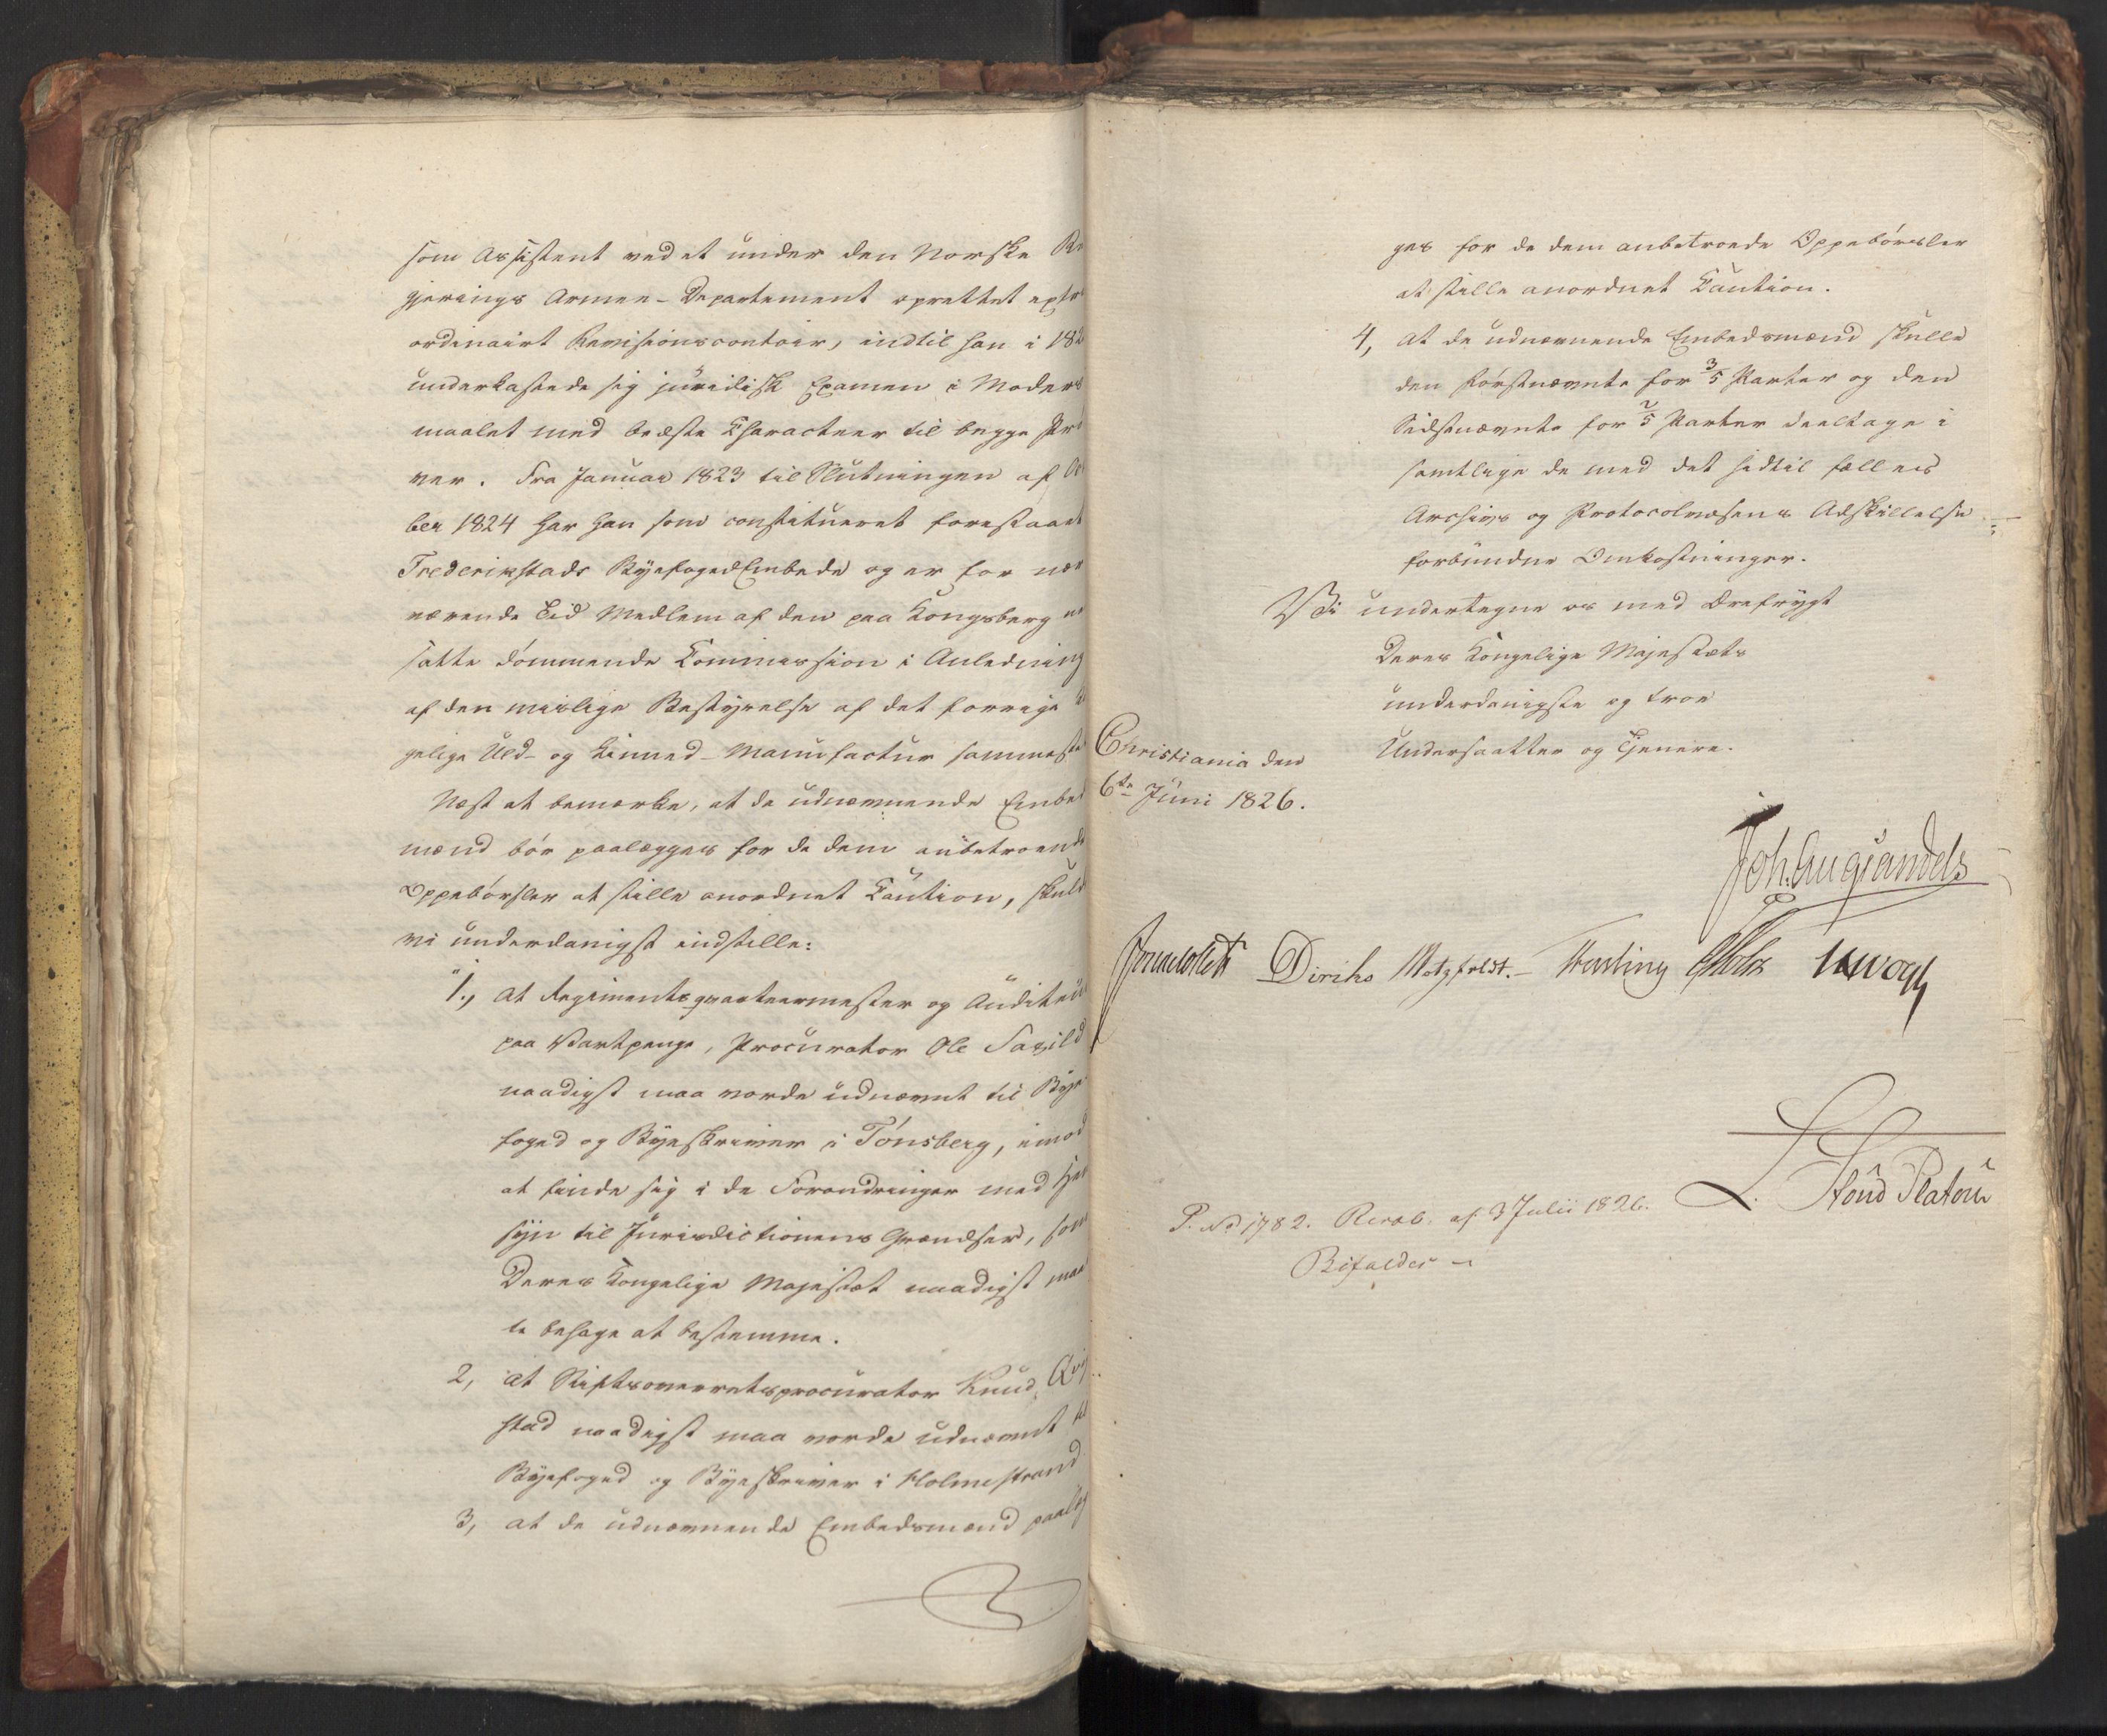 som Assistent ved et under den Norske Re
gjerings Armee-Departement oprettet extra
ordinairt Revisionscontoir, indtil han i 182
underkastede sig juridisk Examen i Moders
maalet med bedste Characteer til begge Prö
ver. Fra Januar 1823 til Slutningen af
ber 1824 har han som constitueret forestaaet
Frederikstads ByefogedEmbede og er for nær
værende Tid Medlem af den paa Kongsberg
satte dömmende Commission i Anledning
af den mislige Bestyrelse af det forrige
gelige Uld- og Linned-Manufactur sammeste
Næst at bemærke, at de udnævnende Embed
mænd bör paalægges for de dem anbetroende
Oppebörsler at stille anordnet Caution, skuld
vi underdanigst indstille:
1., at Regimentsqvarteermester og Auditeur
paa Vartpenge, Procurator Ole Saxild
naadigst maa vorde udnævnt til Bye
foged og Byeskriver i Tönsberg, imod
at finde sig i de Forandringer med Hen
syn til Jurisdictionens Grændser, som
Deres Kongelige Majestæt naadigst maat
te behage at bestemme.
2, at Stiftsoverretsprocurator Knud Qvi
stad naadigst maa vorde udnævnt til
Byefoged og Byeskriver i Holmestrand
3, at de udnævnende Embedsmænd paalæg
ges for de dem anbetroede Oppebörsler
at stille anordnet Caution.
4, at de udnævnende Embedsmænd skulle
den förstnævnte for 3/5 Parter og den
Sidstnævnte for 2/5 Parter deeltage i
samtlige de med det hidtil fælleds
Archivs og Protocolvæsens Adskillelse
forbundne Omkostninger.
Vi undertegne os med Ærefrygt
Deres Kongelige Majestæts
underdanigste og troe
Undersaatter og Tjenere.
Christiania den
6te Juni 1826.
Joh. Aug Sandels
Jonas Collett Diriks Motzfeldt. Fasting Holst Vogt
L. Stoud Platou
P. No 1782. Resol. af 3 Julii 1826.
Bifaldes